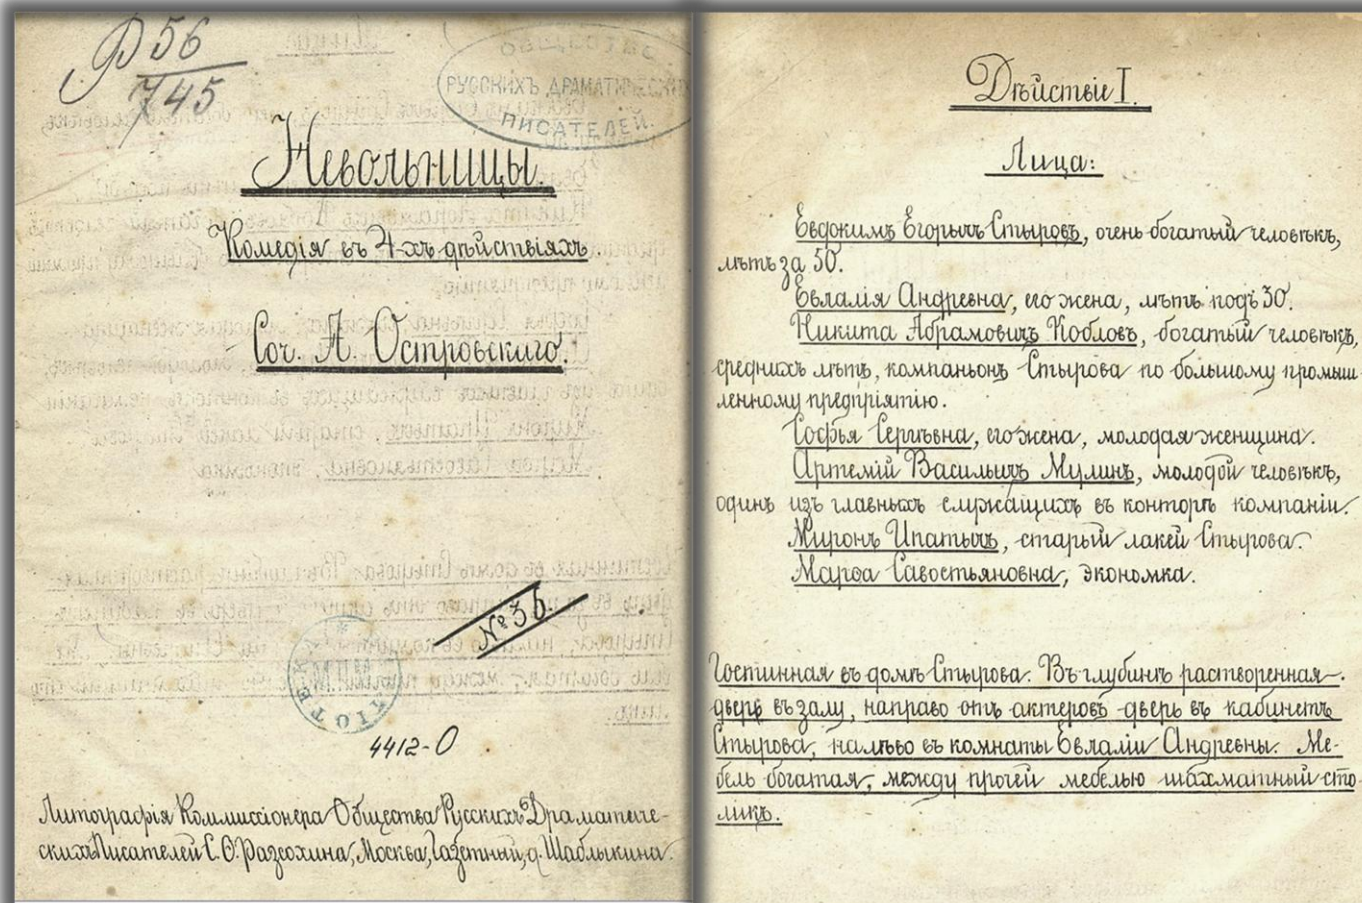 Р 56
745
ОБЩЕСТВО
РУССКИХЪ ДРАМАТИЧЕСКИХЪ
ПИСАТЕЛЕЙ.
Невольницы.
Комедія въ 4-хъ дѣйствіяхъ.
Соч. А. Островскаго.
№ 36
4412-О
Литографія Коммиссіонера Общества Русскихъ Драматиче-
скихъ Писателей С. Ѳ. Разсохина, Москва, Газетный, д. Шаблыкина.
Дѣйствіе I.
Лица:
Евдокимъ Егорычъ Стыровъ, очень богатый человѣкъ,
лѣтъ за 50.
Евлалія Андревна, его жена, лѣтъ подъ 30.
Никита Абрамовичъ Кобловъ, богатый человѣкъ,
среднихъ лѣтъ, компаньонъ Стырова по большому промыш-
ленному предпріятію.
Софья Сергѣвна, его жена, молодая женщина.
Артемій Васильичъ Мулинъ, молодой человѣкъ,
одинъ изъ главныхъ служащихъ въ конторѣ компаніи.
Миронъ Ипатычъ, старый лакей Стырова.
Марѳа Савостьяновна, экономка.
Гостинная въ домѣ Стырова. Въ глубинѣ растворенная
дверь въ залу, направо отъ актеровъ дверь въ кабинетъ
Стырова, налѣво въ комнаты Евлаліи Андревны. Ме-
бель богатая, между прочей мебелью шахматный сто-
ликъ.